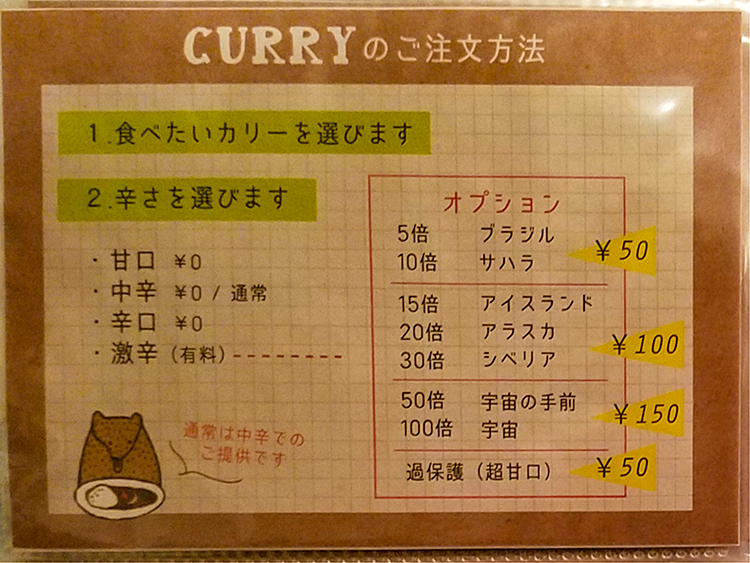 CURRYのご注文方法
1.食べたいカリーを選びます
2.辛さを選びます
・甘口 ¥0
・中辛 ¥0 / 通常
・辛口 ¥0
・激辛 (有料)--------
通常は中辛での
ご提供です
オプション
5倍 ブラジル
10倍 サハラ
¥50
15倍 アイスランド
20倍 アラスカ
30倍 シベリア
¥100
50倍 宇宙の手前
100倍 宇宙
¥150
過保護 (超甘口)
¥50